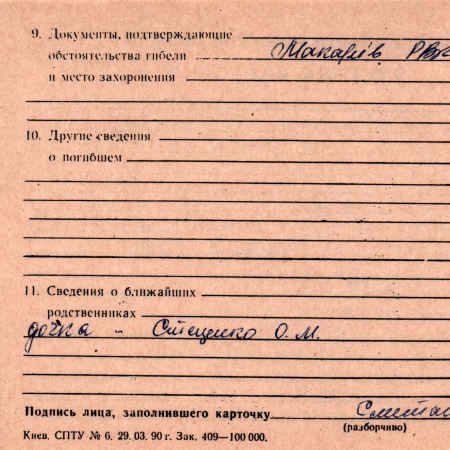 9. Документы, подтверждающие
обстоятельства гибели Макарів РВК
и место захоронения
10. Другие сведения
о погибшем
11. Сведения о ближайших
родственниках
дочка – Стеценко О.М.
Подпись лица, заполнившего карточку
(разборчиво)
Киев. СПТУ № 6. 29. 03. 90 г. Зак. 409—100 000.